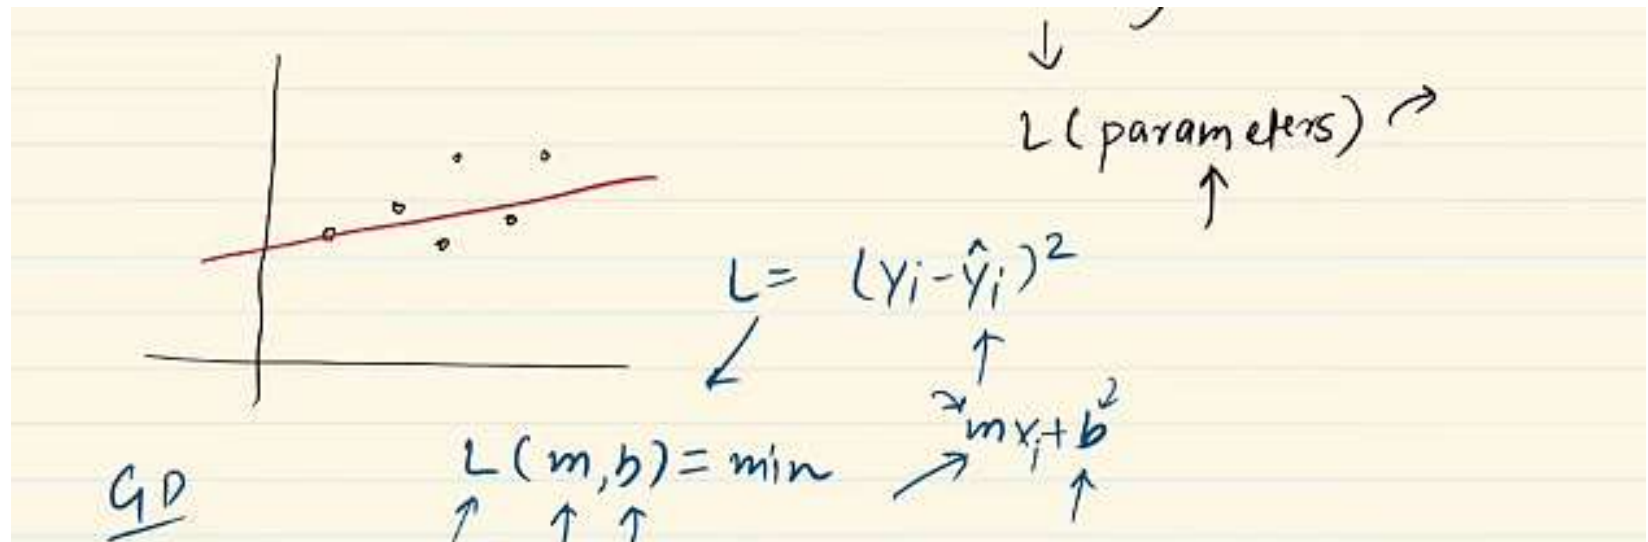 L(parameters)
L = (yi - ŷi)²
mxi + b
L(m,b) = min
GD